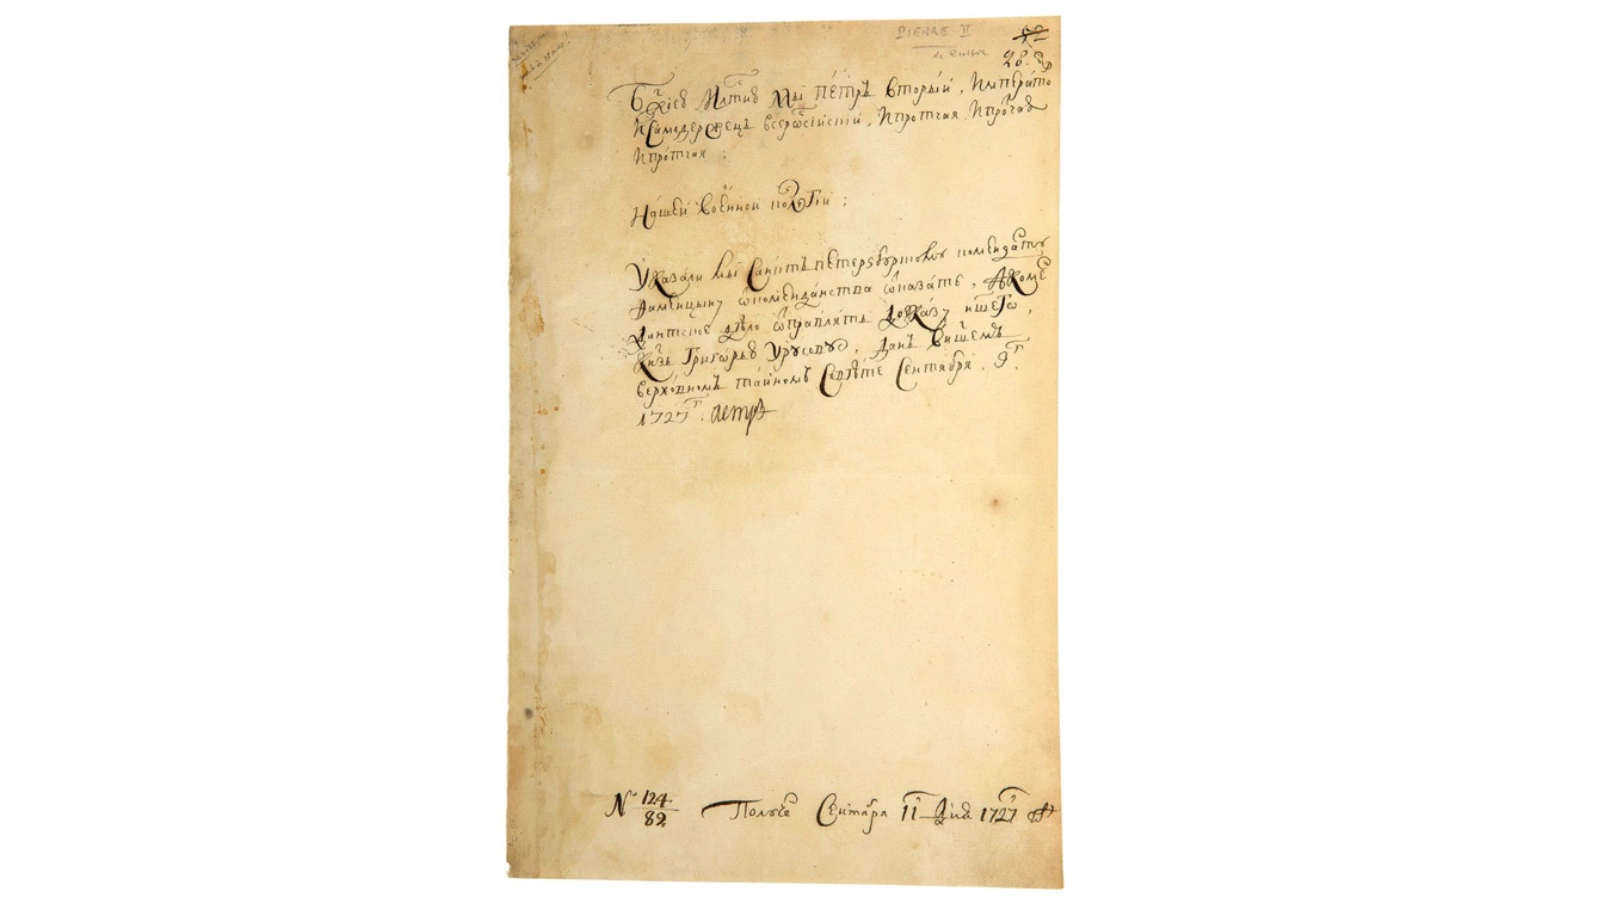 PIERRE II
28.
Бжиею Млтию Мы пéтръ вторыи, Императо
И Самодержецъ всеросiискiи, Ипротчая Ипрочая
Ипротчая :
Нáшей военнои колегiи ;
Указали мы Санктъ петерзбургскому коменданту
Фаминцыну ѿ комендáнства ѿказáть, А комен
дантское дѣло ѿправлять до Указу нашего,
Кнзь Григорью Урусову, Данъ внашемъ
верхóвномъ тáйномъ Совѣте Сентября, 9г
1727г: петръ
№ 124/82 Получе Сентября 11 дня 1727